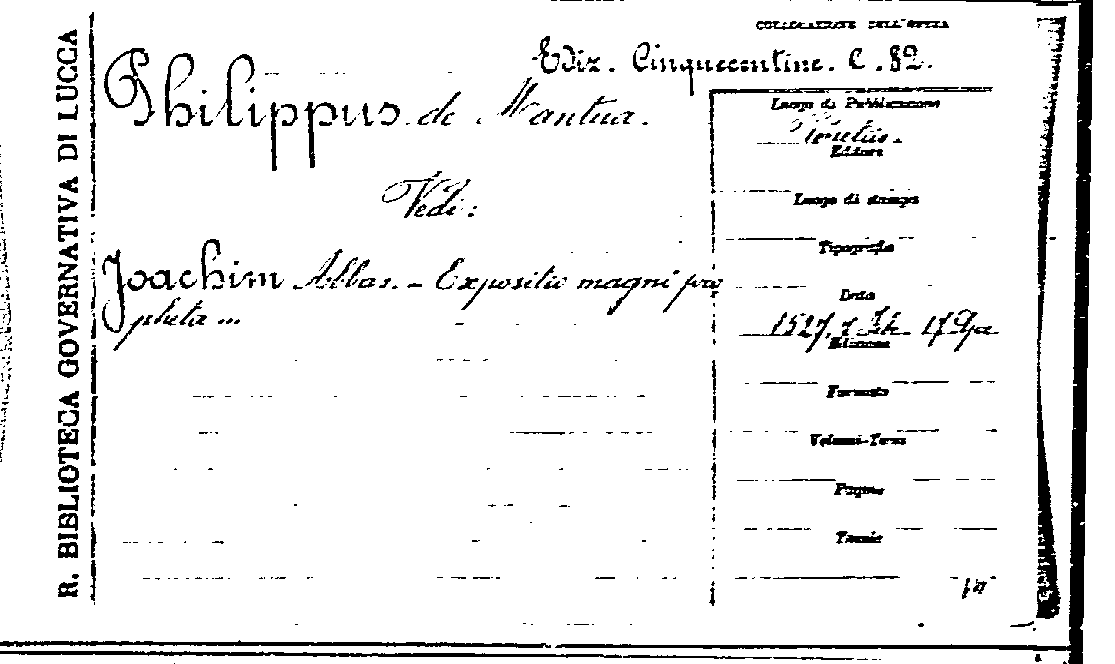 R. BIBLIOTECA GOVERNATIVA DI LUCCA
COLLOCAZIONE DELL'OPERA
Ediz. Cinquecentine. C. 82.
Philippus de Mantua.
Vedi:
Joachim Abbas. - Expositio magni pro
pheta ...
Luogo di Pubblicazione
Venetiis.
Editore
Luogo di stampa
Tipografia
Data
1527,
Edizione
Formato
Volumi-Tomi
Pagine
Tavole